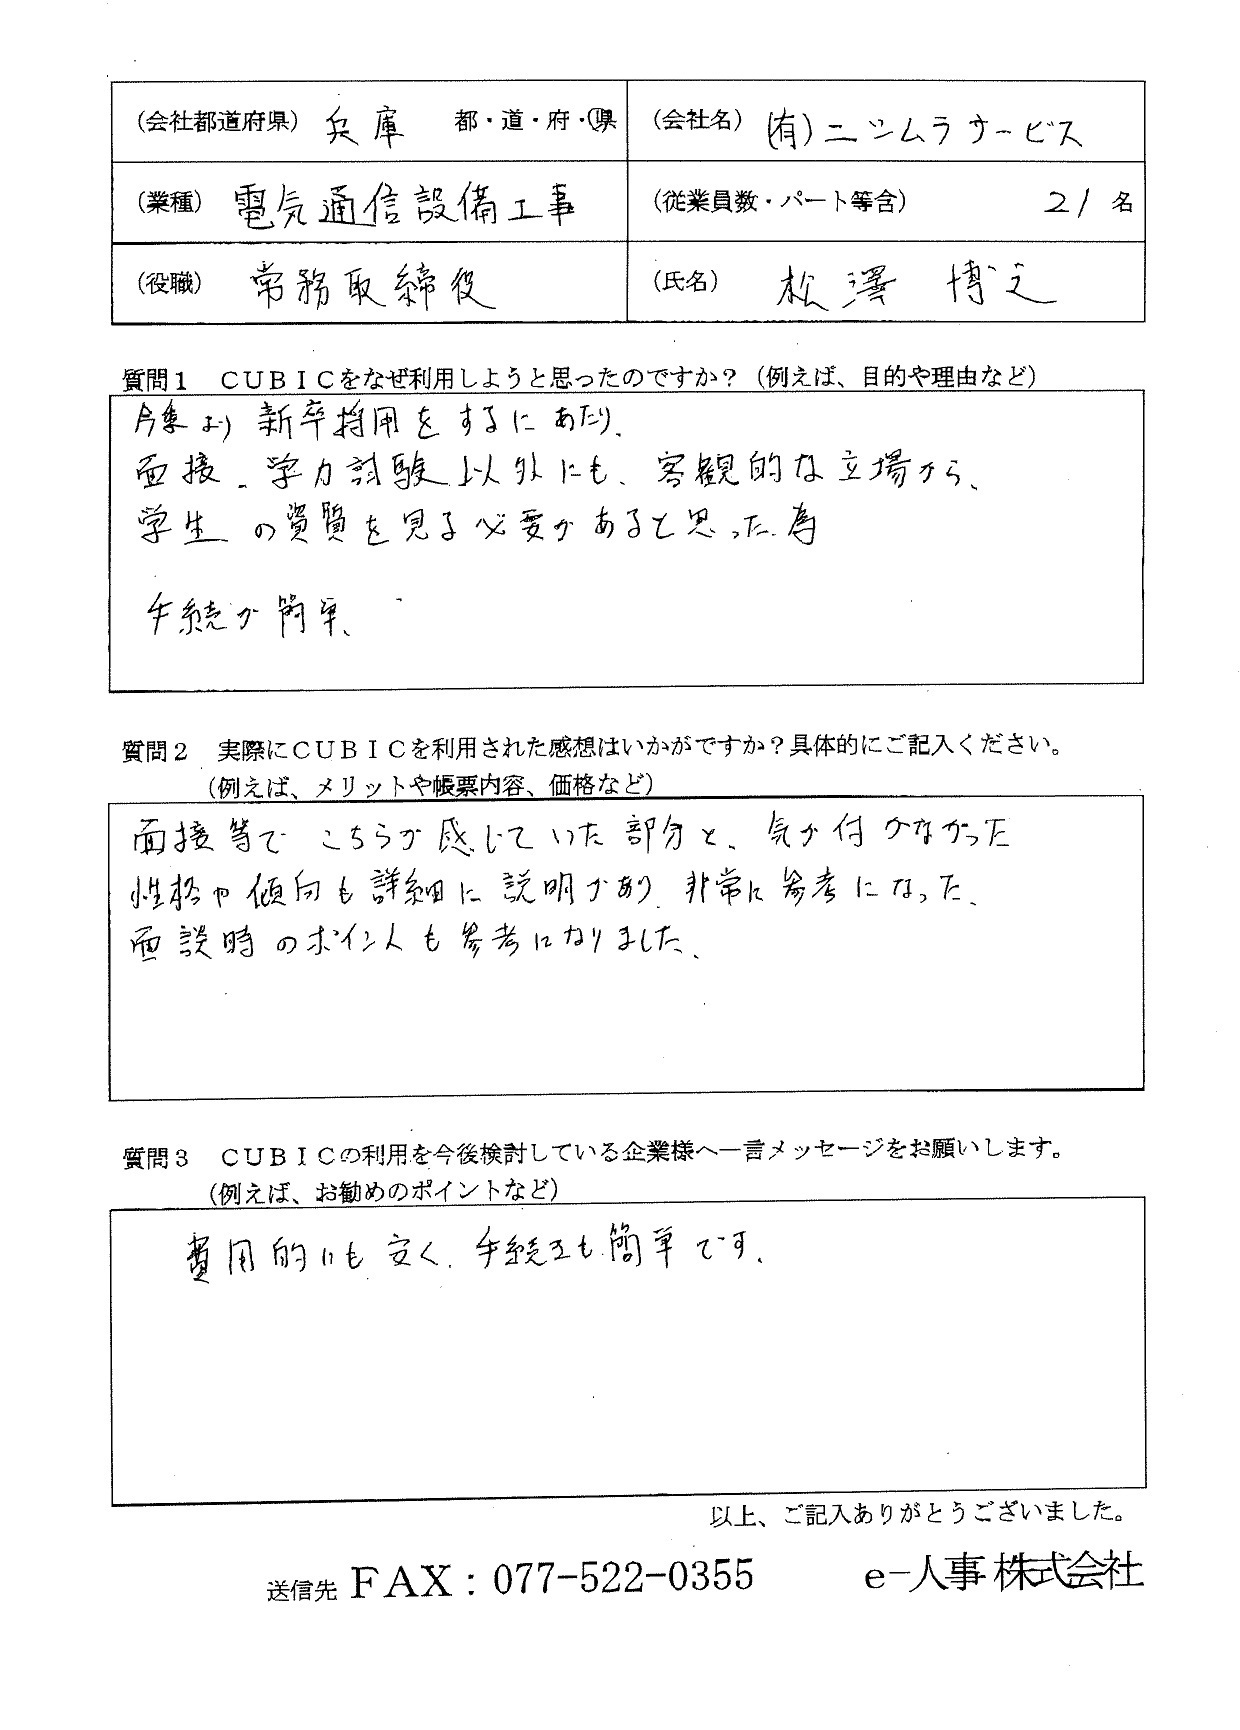 (会社都道府県) 兵庫 都・道・府・県
(会社名) (有)ニシムラサービス
(業種) 電気通信設備工事
(従業員数・パート等含) 21 名
(役職) 常務取締役
(氏名) 松澤 博之
質問1 CUBICをなぜ利用しようと思ったのですか?(例えば、目的や理由など)
今季より新卒採用をするにあたり、
面接、学力試験以外にも、客観的な立場から、
学生の資質を見る必要があると思った為
手続が簡単、
質問2 実際にCUBICを利用された感想はいかがですか?具体的にご記入ください。
(例えば、メリットや帳票内容、価格など)
面接等でこちらが感じていた部分と、気が付かなかった
性格や傾向も詳細に説明があり、非常に参考になった、
面談時のポイントも参考になりました、
質問3 CUBICの利用を今後検討している企業様へ一言メッセージをお願いします。
(例えば、お勧めのポイントなど)
費用的にも安く、手続きも簡単です、
以上、ご記入ありがとうございました。
送信先 FAX:077-522-0355 e-人事株式会社